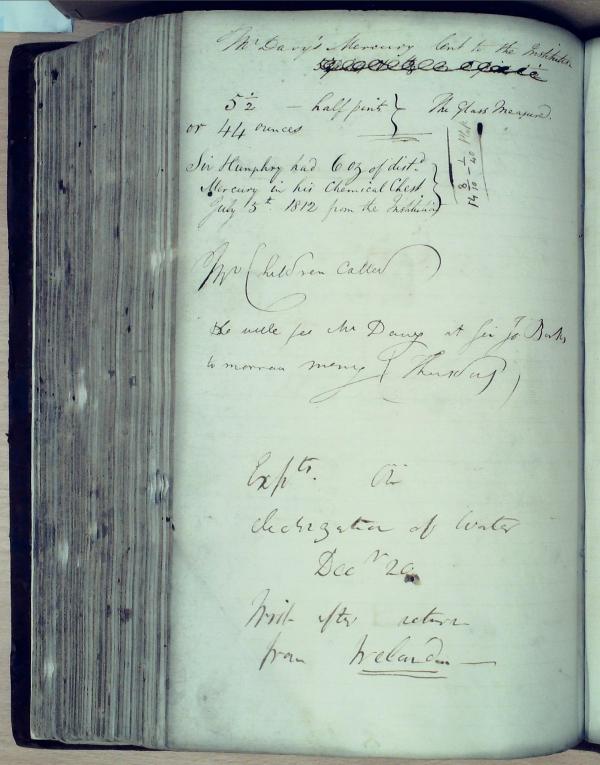 Mr. Davy's Mercury lent to the Institution
5 1/2 — half pint } The Glass Measured.
or 44 ounces
Sir Humphry had 6 oz of distd.
Mercury in his Chemical Chest
July 5th. 1812 from the Institution
Mr Children called
He will see Mr Davy at Sir Jo Banks
to morrow morng (Thursday)
Expts. On
electrization of Water
Decr 20
Writ after return
from Ireland —